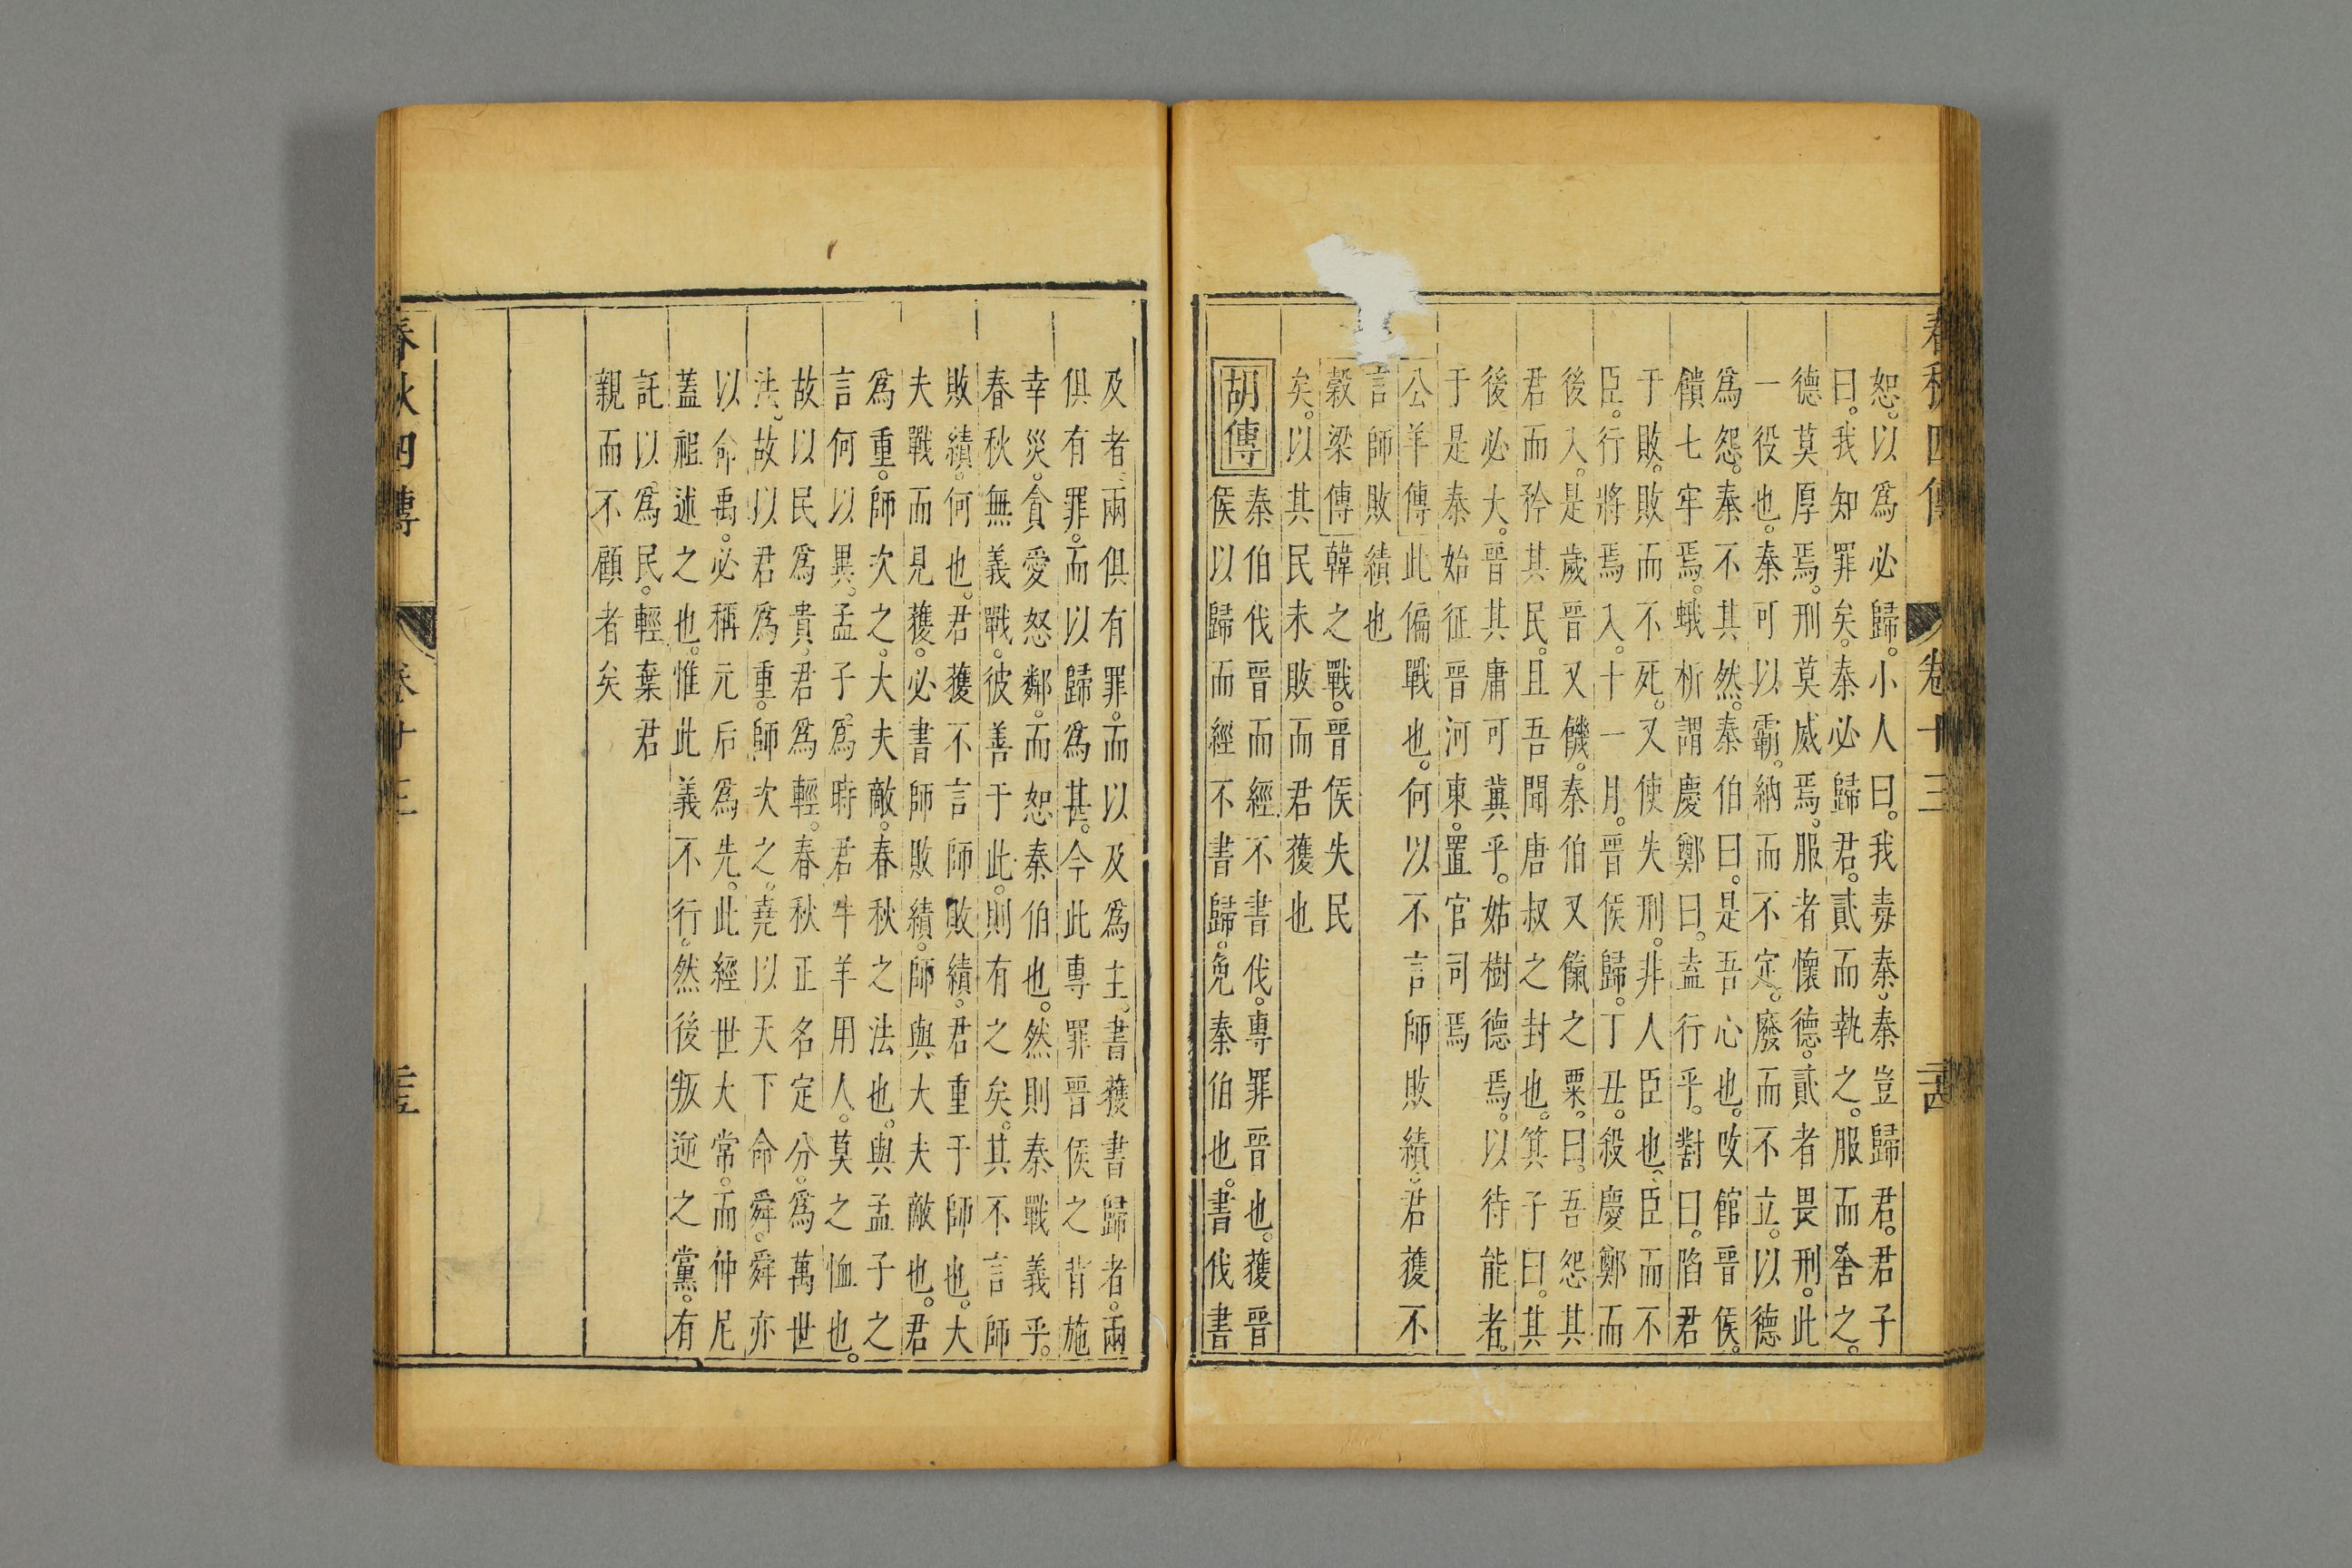 春秋四傳 卷十三 二十四
恕。以爲必歸。小人曰。我毒秦。秦豈歸君。君子
曰。我知罪矣。秦必歸君。貳而執之。服而舍之。
德莫厚焉。刑莫威焉。服者懷德。貳者畏刑。此
一役也。秦可以霸。納而不定。廢而不立。以德
爲怨。秦不其然。秦伯曰。是吾心也。改館晉侯。
饋七牢焉。蛾析謂慶鄭曰。盍行乎。對曰。陷君
于敗。敗而不死。又使失刑。非人臣也。臣而不
臣。行將焉入。十一月。晉侯歸。丁丑。殺慶鄭而
後入。是歲晉又饑。秦伯又餼之粟。曰。吾怨其
君而矜其民。且吾聞唐叔之封也。箕子曰。其
後必大。晉其庸可冀乎。姑樹德焉。以待能者。
于是秦始征晉河東。置官司焉
公羊傳此偏戰也。何以不言師敗績。君獲不
言師敗績也
穀梁傳韓之戰。晉侯失民
矣。以其民未敗而君獲也
胡傳
秦伯伐晉而經不書伐。專罪晉也。獲晉
侯以歸而經不書歸。免秦伯也。書伐書
及者。兩俱有罪。而以及爲主。書獲書歸者。兩
俱有罪。而以歸爲甚。今此專罪晉侯之背施
幸災。貪愛怒鄰。而恕秦伯也。然則秦戰義乎。
春秋無義戰。彼善于此。則有之矣。其不言師
敗績。何也。君獲不言師敗績。君重于師也。大
夫戰而見獲。必書師敗績。師與大夫敵也。君
爲重。師次之。大夫敵。春秋之法也。與孟子之
言何以異。孟子爲時君牛羊用人。莫之恤也。
故以民爲貴。君爲輕。春秋正名定分。爲萬世
法。故以君爲重。師次之。堯以天下命舜。舜亦
以命禹。必稱元后爲先。此經世大常。而仲尼
蓋祖述之也。惟此義不行。然後叛逆之黨。有
託以爲民。輕棄君
親而不顧者矣
春秋四傳 卷十三 二十五